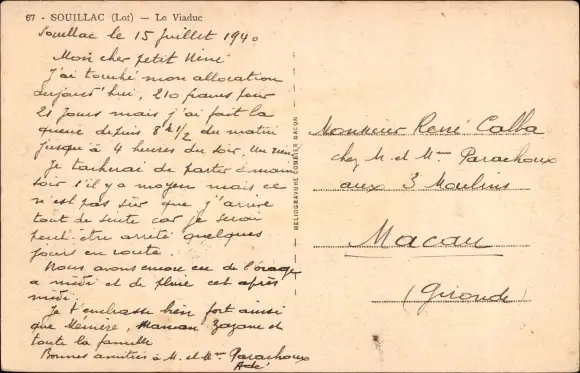 67 - SOUILLAC (Lot) — Le Viaduc
Souillac le 15 Juillet 1940
Mon cher petit Néné
J'ai touché mon allocation
aujourd'hui, 210 francs pour
21 jours mais j'ai fait la
queue depuis 8h 1/2 du matin
jusqu'à 4 heures du soir.
Je tacherai de partir demain
soir s'il y a moyen mais ce
n'est pas sûr que j'arrive
tout de suite car je serai
peut-être arrêté quelques
jours en route.
Nous avons encore eu de l'orage
a midi et de pluie cet après
midi.
Je t'embrasse bien fort ainsi
que Memère, Maman Zazane et
toute la famille
Bonnes amitiés à M. et Mme Parachoux
HELIOGRAVURE COMBIER MACON
Monsieur René Calba
chez M. et Mme Parachoux
aux 3 Moulins
Macau
(Gironde)